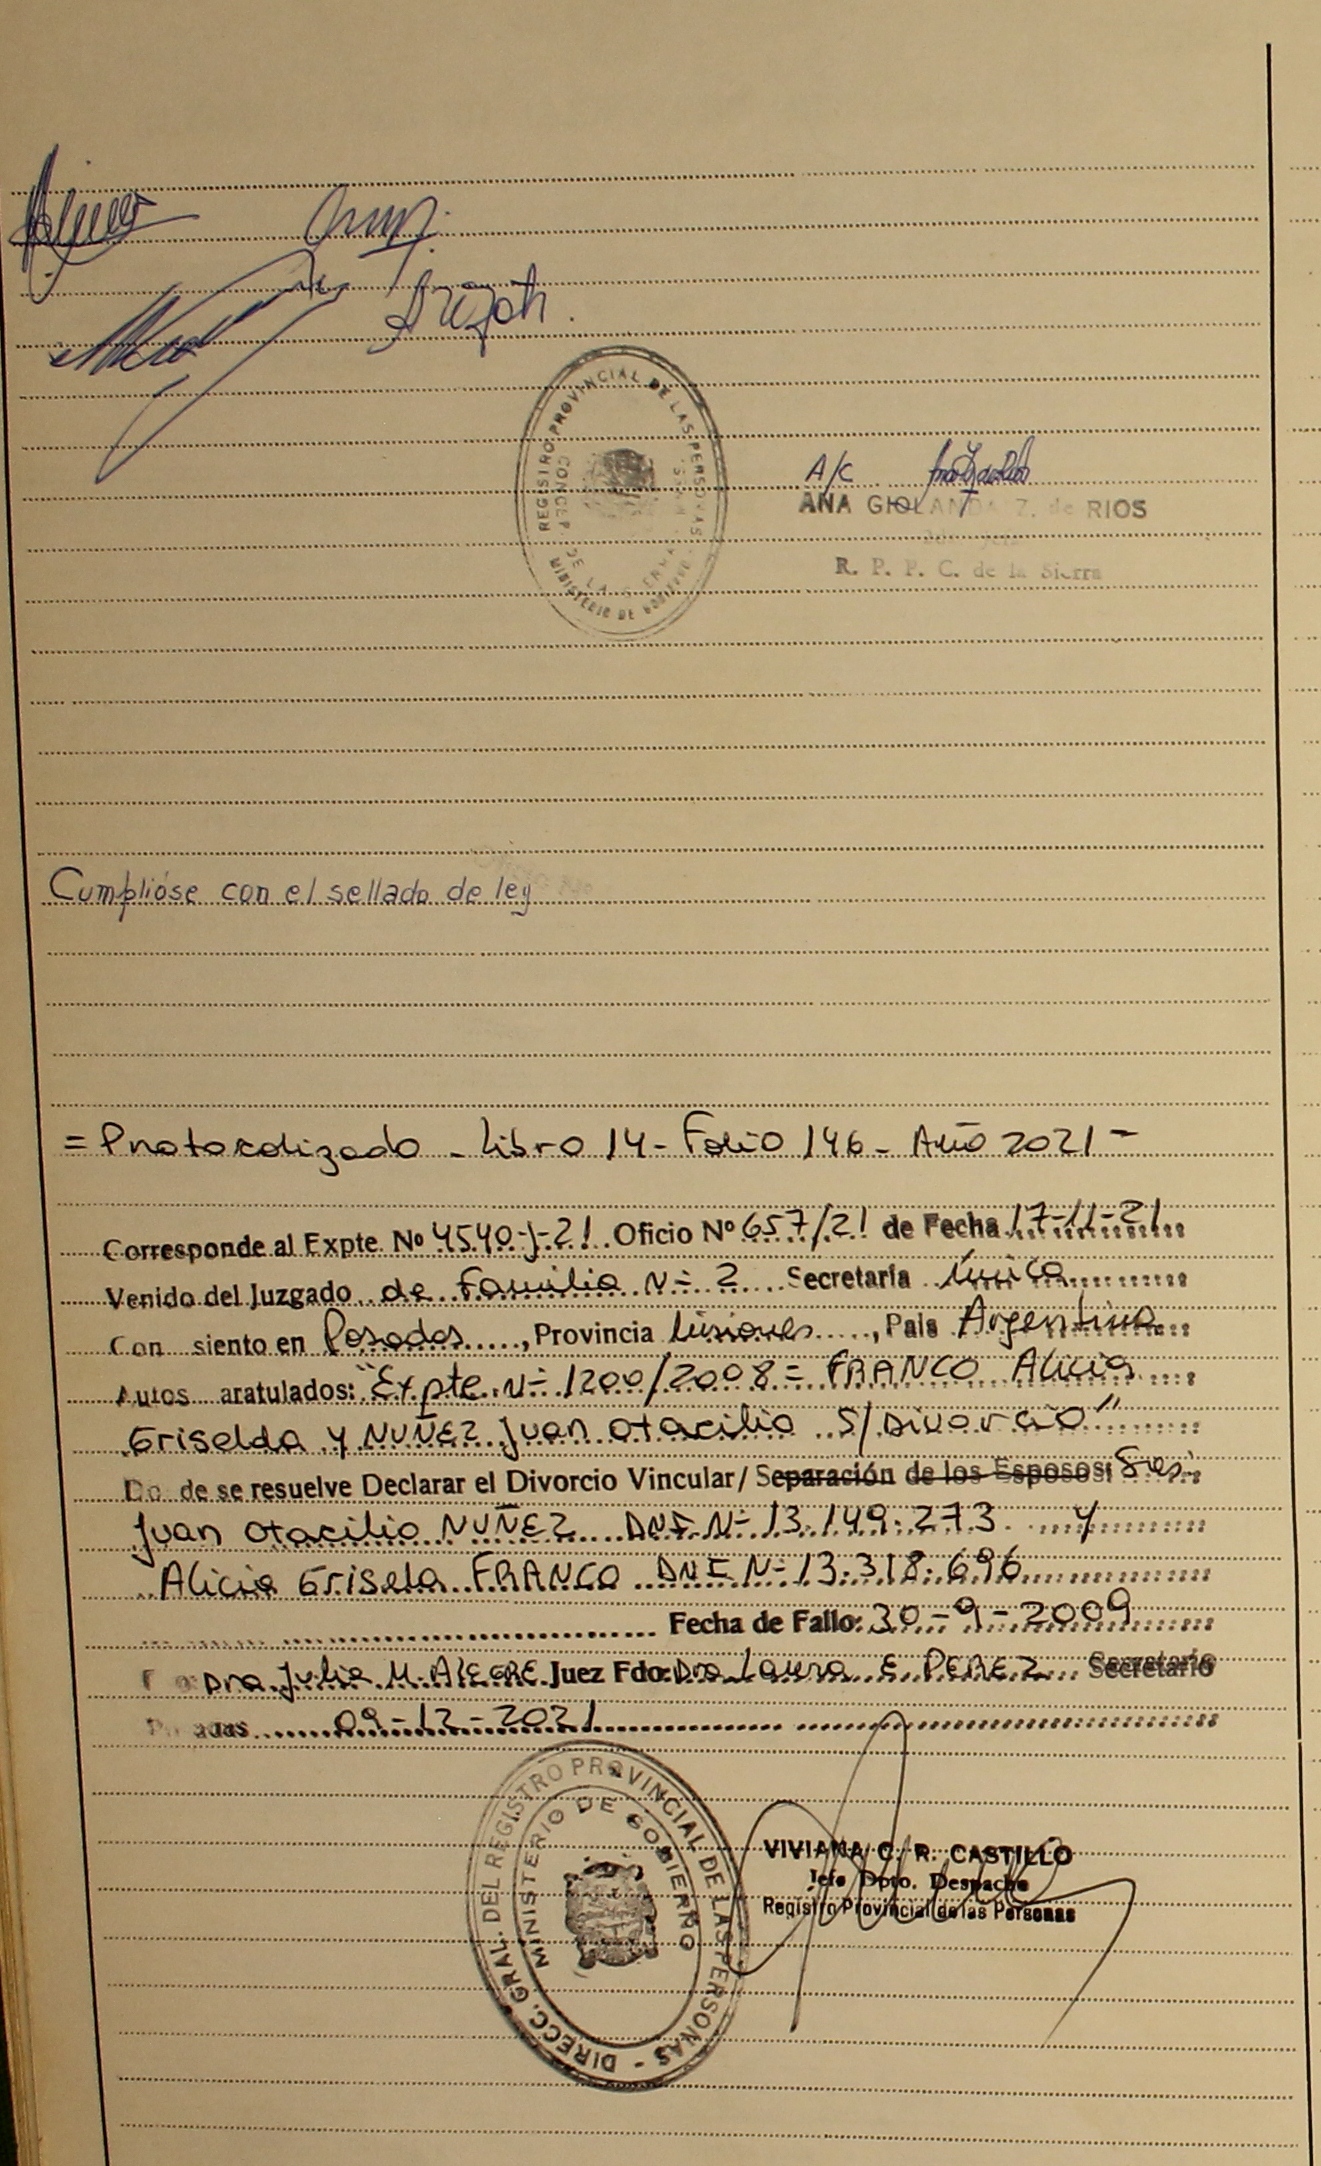 A/C
ANA GIOLANDA Z. de RIOS
R. P. P. C. de la Sierra
REGISTRO PROVINCIAL DE LAS PERSONAS
MINISTERIO DE GOBIERNO
Cumplióse con el sellado de ley
= Protocolizado - Libro 14 - Folio 146 - Año 2021 -
Corresponde al Expte. Nº 4540-J-21 Oficio Nº 657/21 de Fecha 17-11-21
Venido del Juzgado de Familia Nº 2 Secretaria Única
Con siento en Posadas, Provincia Misiones, Pais Argentina
Autos aratulados: "Expte. Nº 1200/2008 = FRANCO Alicia
Griselda y NUÑEZ Juan Otacilio S/Divorcio"
Do de se resuelve Declarar el Divorcio Vincular/ Separación de los Esposos: Sres.
Juan Otacilio NUÑEZ DNI Nº 13.149.273 y
Alicia Grisela FRANCO DNI Nº 13.318.696
Fecha de Fallo: 30-9-2009
Dra. Julia M. ALEGRE Juez Fdo: Dra Laura E. PEREZ Secretario
Posadas 09-12-2021
DIRECC. GRAL. DEL REGISTRO PROVINCIAL DE LAS PERSONAS -
MINISTERIO DE GOBIERNO
VIVIANA C. R. CASTILLO
Jefe Dpto. Despacho
Registro Provincial de las Personas